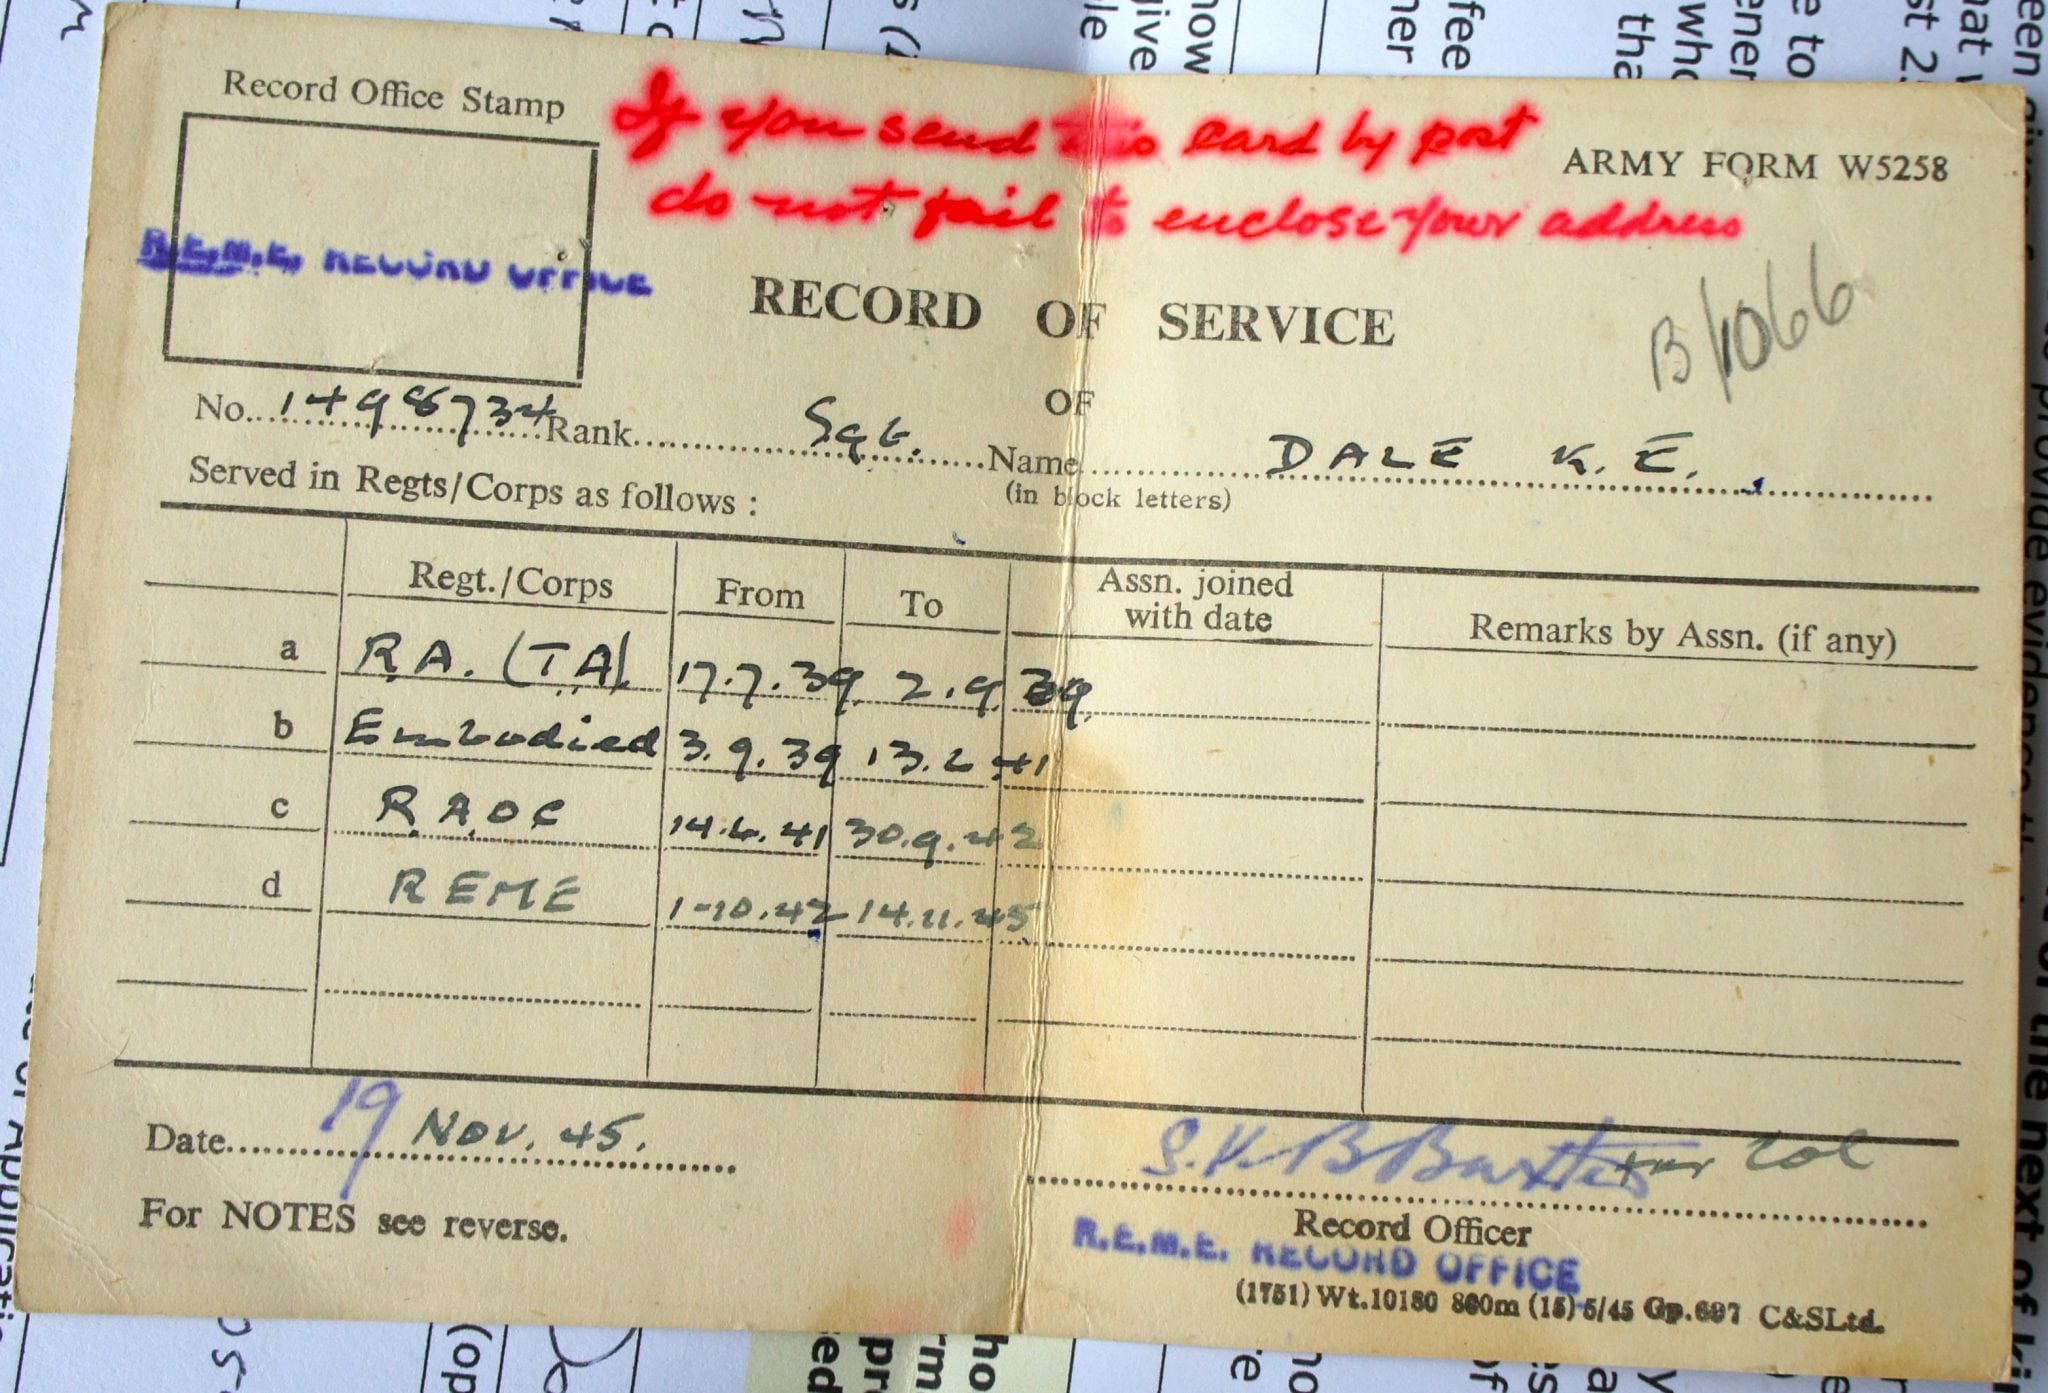 Record Office Stamp
If you send this card by post
do not fail to enclose your address
ARMY FORM W5258
R.E.M.E. RECORD OFFICE
RECORD OF SERVICE
B/1066
OF
No. 1498734 Rank Sgt. Name DALE K. E.
(in block letters)
Served in Regts/Corps as follows :
Regt./Corps From To Assn. joined with date Remarks by Assn. (if any)
a RA. (TA) 17.7.39 2.9.39
b Embodied 3.9.39 13.6.41
c RAOC 14.6.41 30.9.42
d REME 1-10.42 14.11.45
Date 19 Nov. 45.
Col
For NOTES see reverse.
Record Officer
R.E.M.E. RECORD OFFICE
(1751) Wt.10180 800m (15) 5/45 Gp.697 C&SLtd.